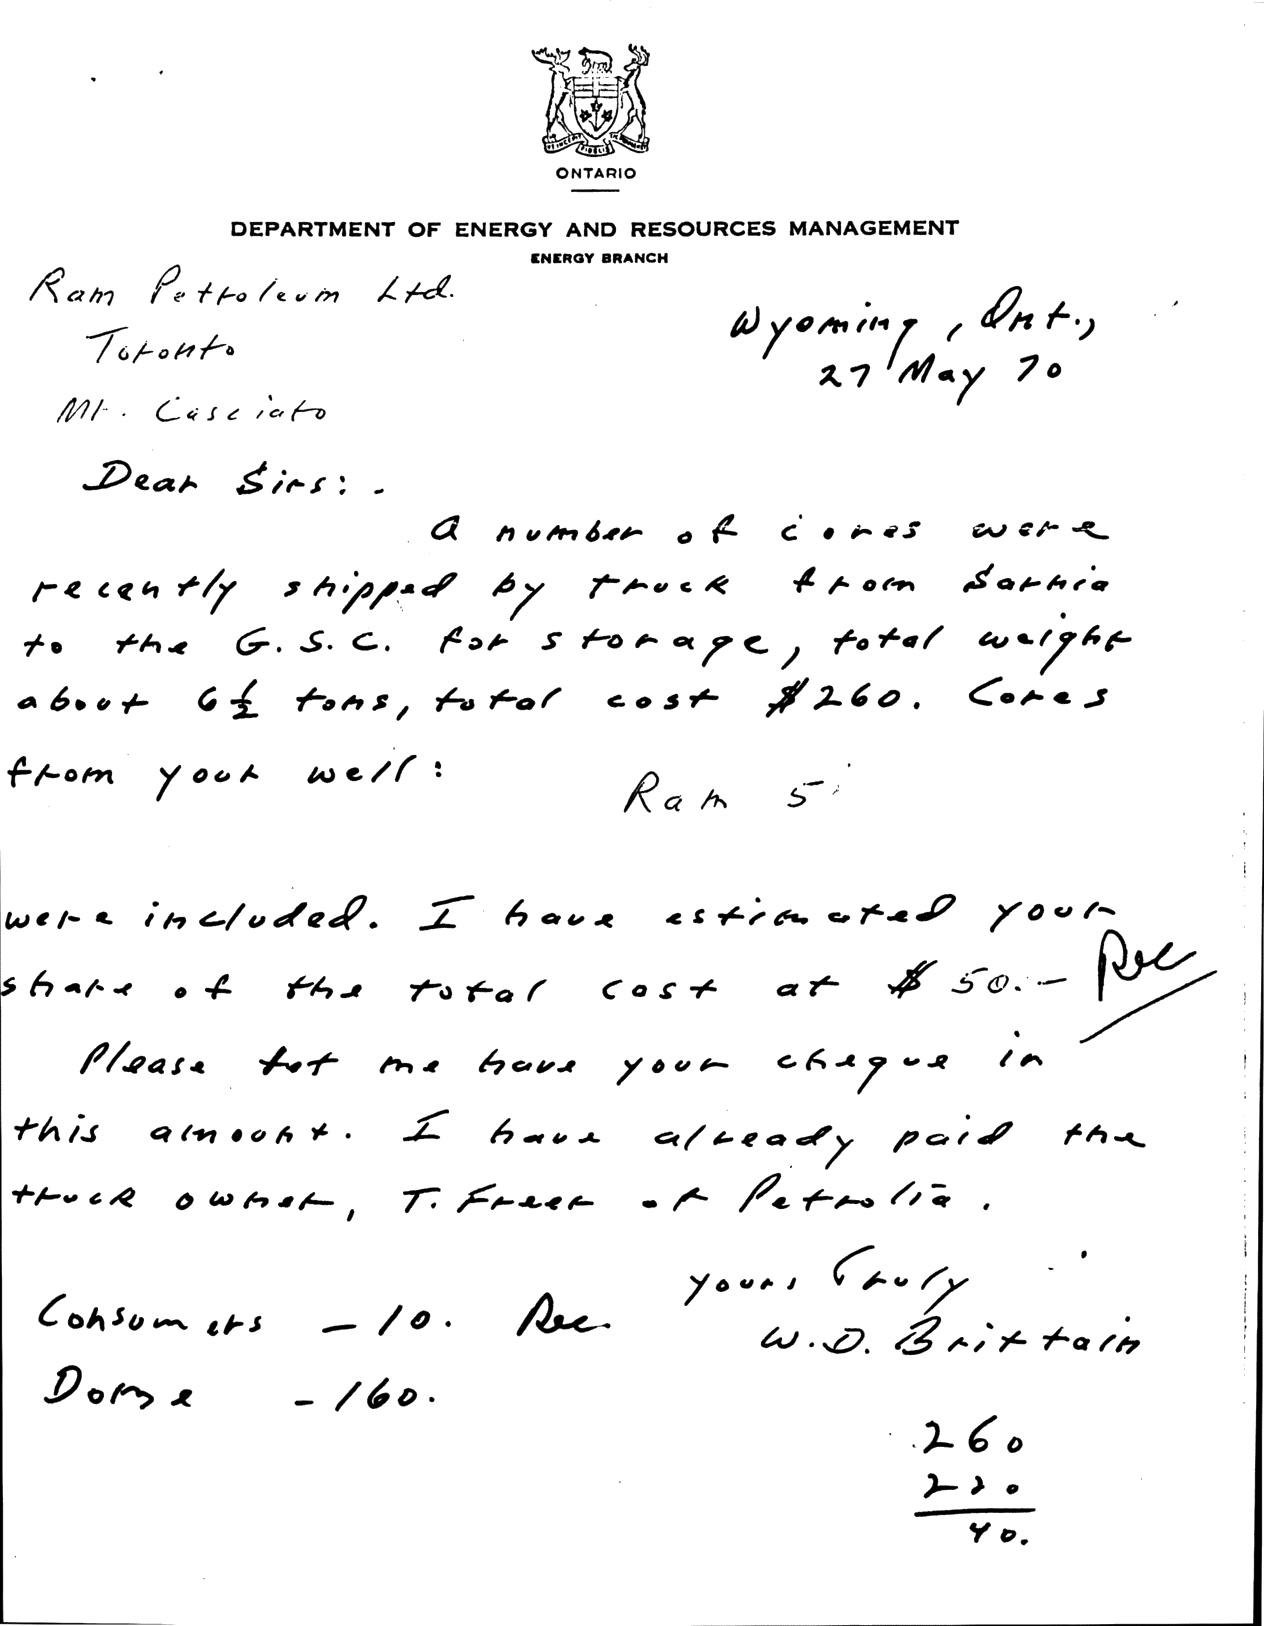 ONTARIO
DEPARTMENT OF ENERGY AND RESOURCES MANAGEMENT
ENERGY BRANCH
Ram Petroleum Ltd.
Toronto
Mr. Casciato
Wyoming, Ont.,
27 May 70
Dear Sirs:-
A number of cores were
recently shipped by truck from Sarnia
to the G.S.C. for storage, total weight
about 6½ tons, total cost $260. Cores
from your well:
Ram 5
were included. I have estimated your
share of the total cost at $50.- Rec
Please let me have your cheque in
this amount. I have already paid the
truck owner, T. Freer of Petrolia.
yours Truly
W.D. Brittain
Consumers - 10. Rec.
Dome - 160.
260
220
40.